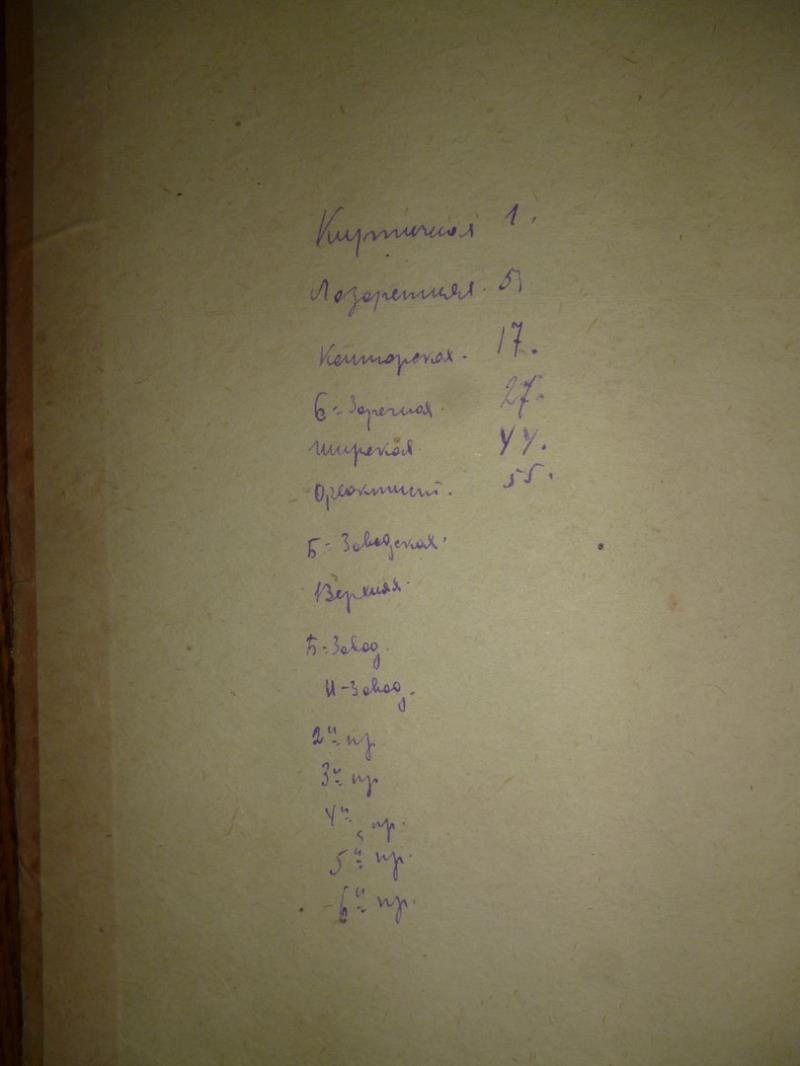 Кирпичная 1.
Лазаретная. 5
Конторская. 17.
Б-Заречная. 27.
Ширская 44.
55.
Б-Заводская.
Верхняя.
Б-Завод.
Н-Завод.
2й пр.
3й пр
4й пр.
5й пр.
6й пр.